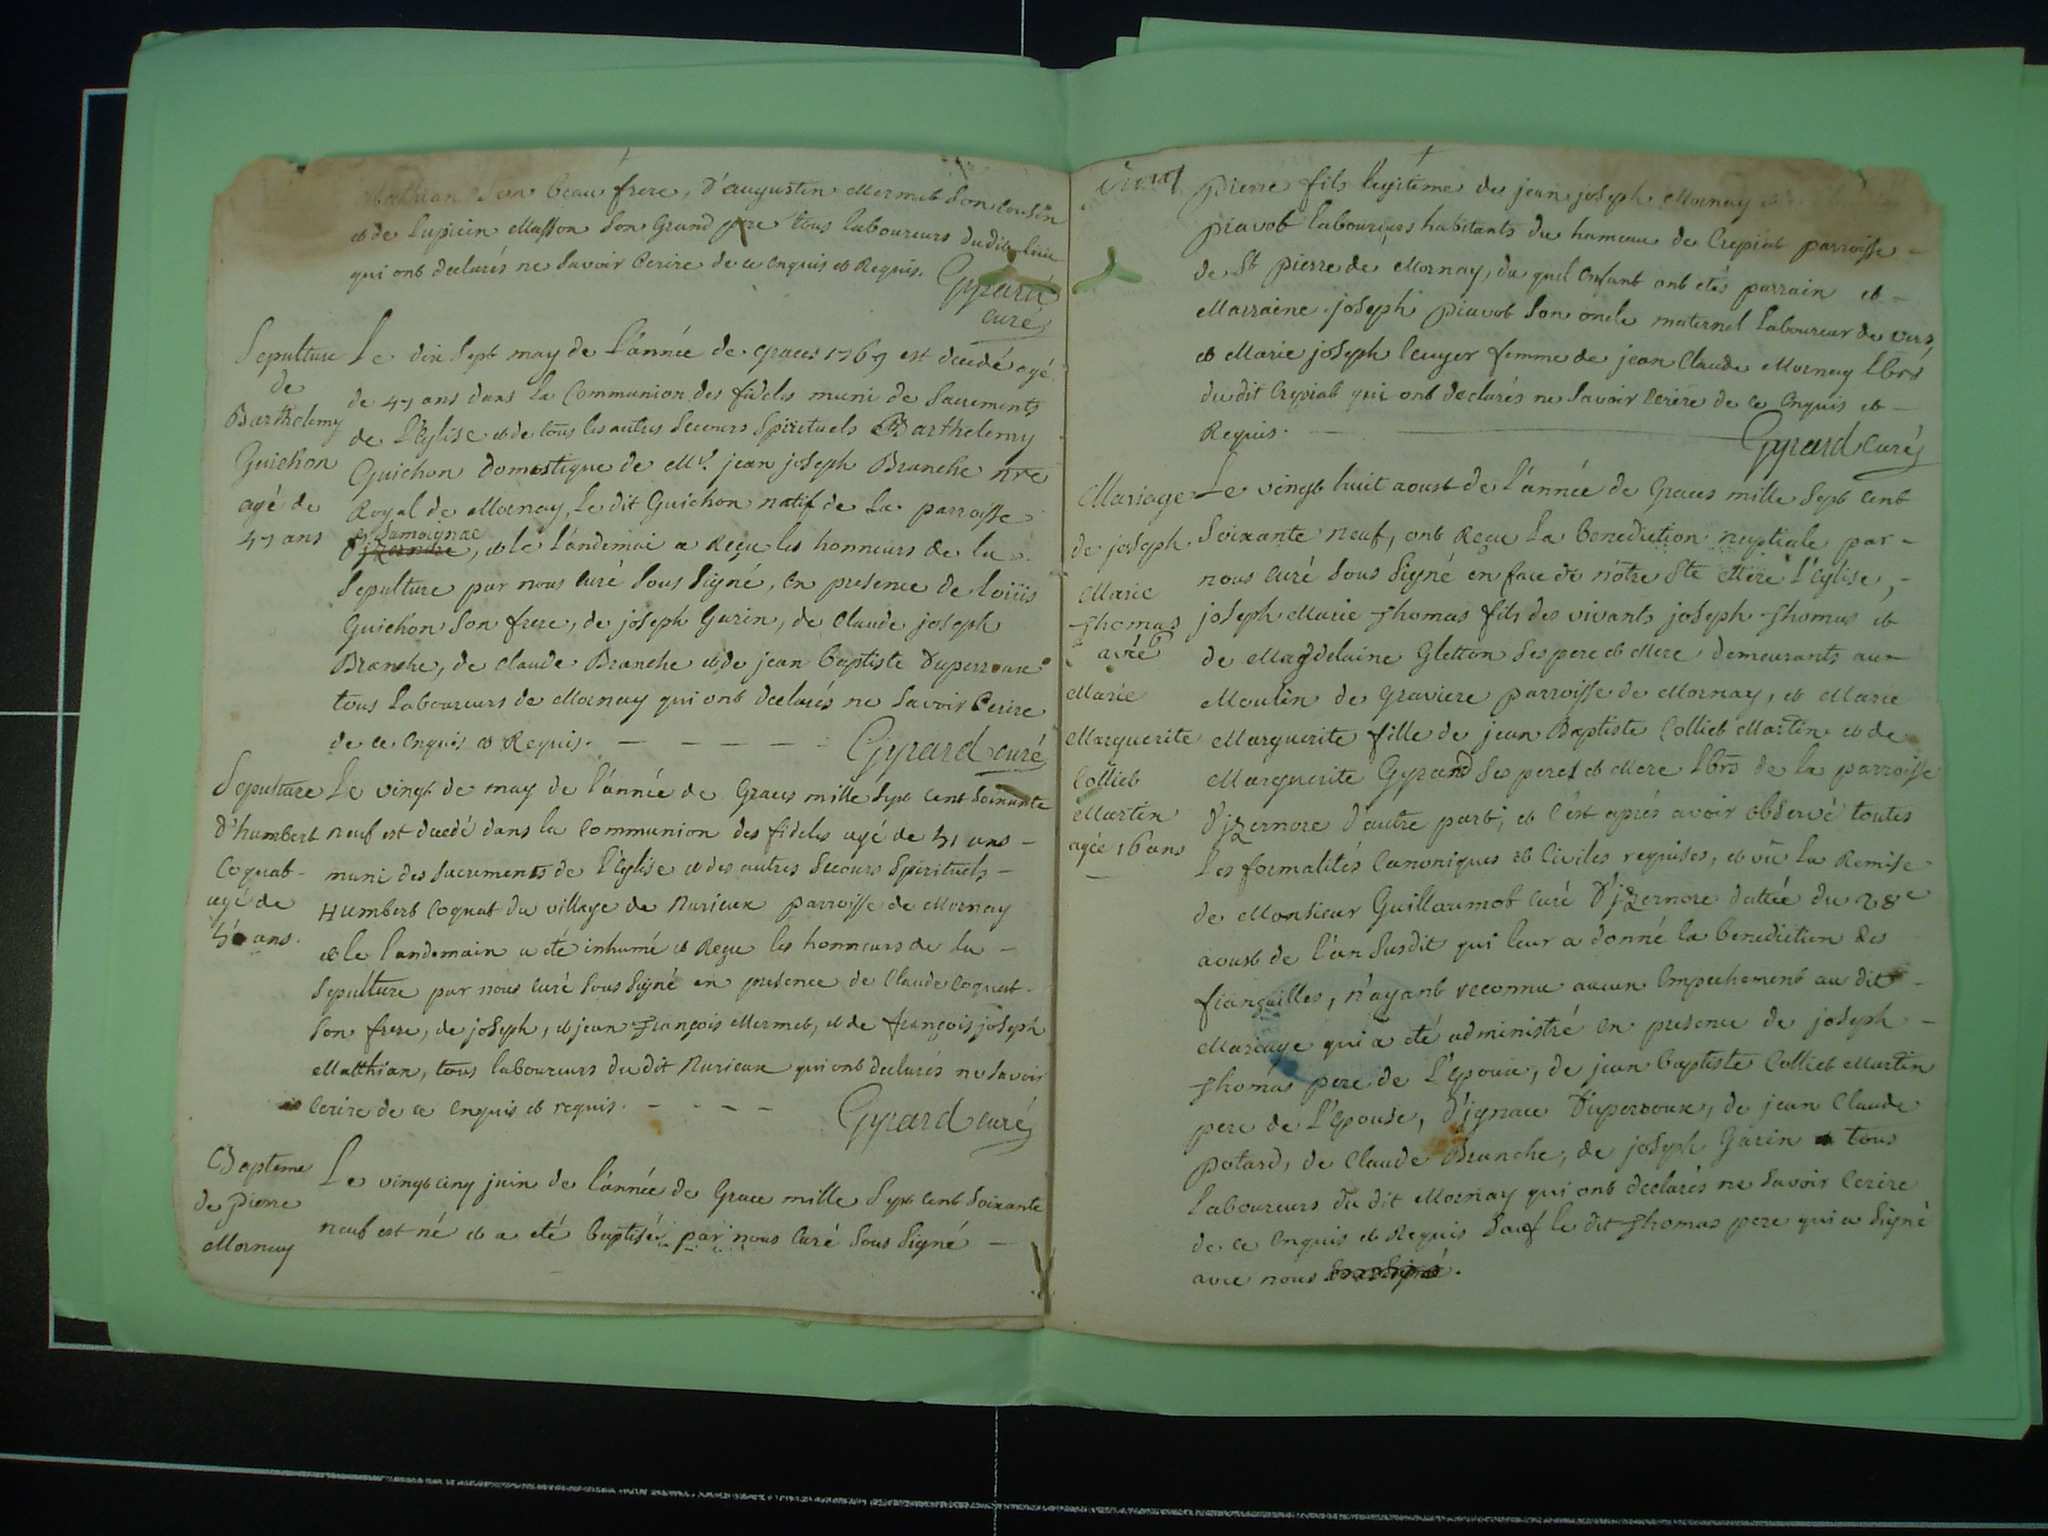 Matthian Son beau frere, d'augustin Mermet Son Cousin
et de Lupicin Masson Son Grand pere tous laboureurs dudit lieu
qui ont declarés ne Savoir Ecrire de ce Enquis et Requis.
Gyrard
curé
Sepulture
de
Barthelemy
Guichon
agé de
47 ans
Le dix Sept may de l'année de graces 1769 est decedé agé
de 47 ans dans la Communion des fideles muni de Sacrements
de L'Eglise et de tous les autres Secours Spirituels Barthelemy
Guichon domestique de Mr. jean joseph Branche nre
Royal de Mornay, Le dit Guichon natif de La parroisse
Samoignac
d'jzernore, et le Landemai a Reçu les honneurs de la
Sepulture par nous Curé Sous Signé, en presence de Loüis
Guichon Son frere, de joseph Garin, de Claude joseph
Branche, de Claude Branche et de jean baptiste Duperroux
tous Laboureurs de Mornay qui ont declarés ne Savoir Ecrire
de ce Enquis et Requis. - - - - -
Gyrard curé
Sepulture
d'humbert
Coquat
agé de
ans.
Le vingt de may de l'année de Graces mille Sept Cent Soixante
neuf est decedé dans la Communion des fideles agé de 51 ans -
muni des Sacrements de l'Eglise et des autres Secours Spirituels -
Humbert Coquat du village de Nurieux parroisse de Mornay
et le landemain a été inhumé et Reçu les honneurs de la -
Sepulture par nous Curé Sous Signé en presence de Claude Coquat -
Son frere, de joseph, et jean François Mermet, et de françois joseph
Matthian, tous laboureurs du dit Nurieux qui ont declarés ne Savoir
Ecrire de ce Enquis et requis. - - - -
Gyrard curé
Bapteme
de Pierre
Mornay
Le vingt cinq juin de l'année de Grace mille Sept Cent Soixante
neuf est né et a eté baptisé par nous Curé Sous Signé -
pierre fils legitême de jean joseph Mornay et
piavot laboureurs habitants du hameau de Crepiat parroisse -
de St pierre de Mornay, du quel Enfant ont étés parrain et -
Marraine joseph piavot Son oncle maternel Laboureur de vers,
et Marie joseph Leuyer femme de jean Claude Mornay Lbrs
du dit Crepiat qui ont declarés ne Savoir Ecrire de ce Enquis et -
Requis. -
Gyrard Curé
Mariage
de joseph
Marie
Thomas
avec
Marie
Marguerite
Colliet
Martin
agée 16 ans
Le vingt huit aoust de l'année de Graces mille Sept Cent
Soixante neuf, ont Reçu La benediction nuptiale par -
nous Curé Sous Signé en face de nôtre Ste Mère L'Eglise, -
joseph Marie Thomas fils des vivants joseph Thomas et
de Magdelaine Gletton Ses pere et Mere demeurants au -
Moulin de Graviere parroisse de Mornay, et Marie
Marguerite fille de jean Baptiste Colliet Martin et de
Marguerite Gyrand Ses peres et Mere Lbrs de la parroisse
d'jzernore d'autre part, et c'est aprés avoir observé toutes
Les formalités Canoniques et Civiles requises, et vû La Remise
de Monsieur Guillaumot Curé d'jzernore dattée du 28e
aoust de l'an Susdit qui leur a donné la benediction des
fiançailles, n'ayant reconnu aucun Empechement au dit -
Mariage qui a été administré en presence de joseph -
Thomas pere de L'Epoux, de jean baptiste Colliet Martin
pere de L'Epouse, d'ignace Duperroux, de jean Claude
potard, de Claude Branche, de joseph Garin tous
Laboureurs du dit Mornay qui ont declarés ne Savoir Ecrire
de ce Enquis et Requis Sauf le dit Thomas pere qui a Signé
avec nous